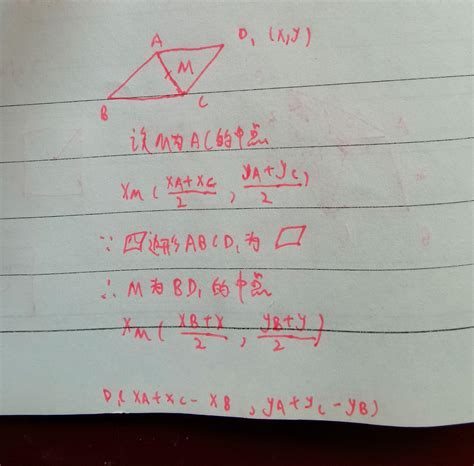 A
D₁(x,y)
M
B
C
设M为AC的中点
XM(xA+xC/2, yA+yC/2)
∵四边形ABCD₁为▱
∴M为BD₁的中点
XM(xB+x/2, yB+y/2)
D₁(xA+xC-xB, yA+yC-yB)